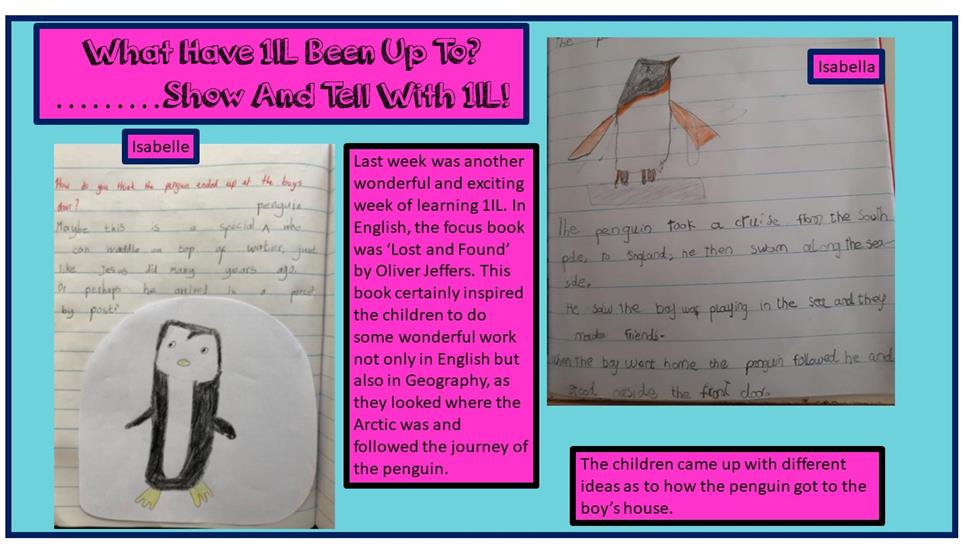 What Have 1IL Been Up To?
.........Show And Tell With 1IL!
Isabelle
How do you think the penguin ended up at the boys
door?
penguin
Maybe this is a special ^ who
can waddle on top of water, just
like Jesus did many years ago.
Or perhaps he arrived in a parcel
by post?
Last week was another
wonderful and exciting
week of learning 1IL. In
English, the focus book
was ‘Lost and Found’
by Oliver Jeffers. This
book certainly inspired
the children to do
some wonderful work
not only in English but
also in Geography, as
they looked where the
Arctic was and
followed the journey of
the penguin.
Isabella
the
The penguin took a cruise from the South
pole, to England, he then swam along the sea-
side.
He saw the boy was playing in the sea and they
made friends.
When the boy went home the penguin followed he and
stood outside the front door.
The children came up with different
ideas as to how the penguin got to the
boy’s house.